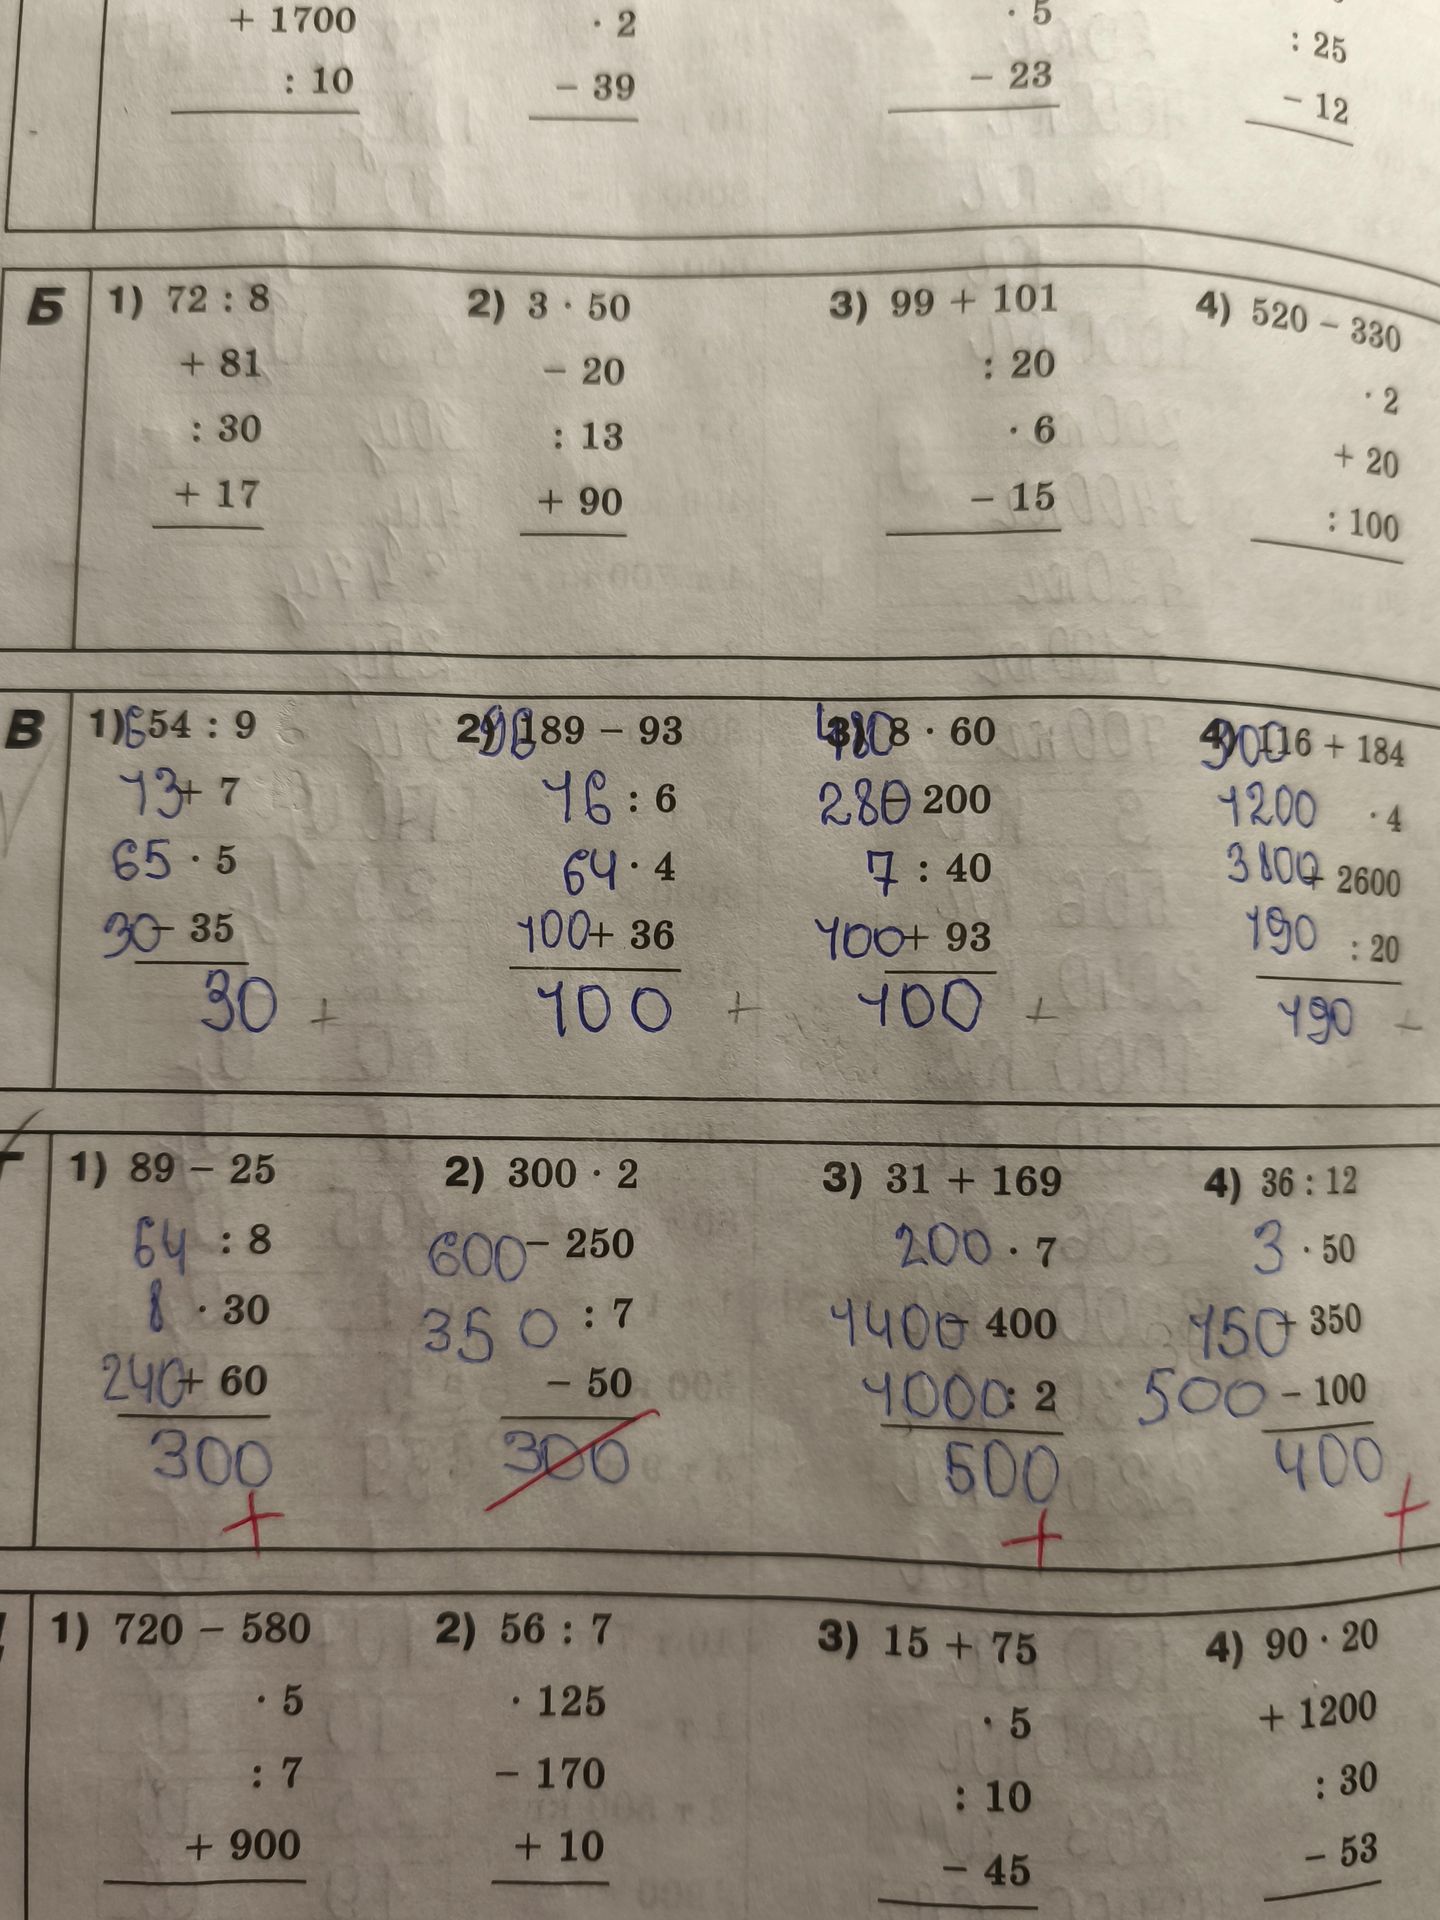 + 1700 · 2 · 5 : 25
: 10 − 39 − 23 − 12
Б 1) 72 : 8 2) 3 · 50 3) 99 + 101 4) 520 − 330
+ 81 − 20 : 20 · 2
: 30 : 13 · 6 + 20
+ 17 + 90 − 15 : 100
В 1) 6 54 : 9 2) 96 189 − 93 3) 480 8 · 60 4) 300 116 + 184
13 + 7 16 : 6 280 − 200 1200 · 4
65 · 5 64 · 4 7 : 40 3800 + 2600
30 − 35 100 + 36 100 + 93 190 : 20
30 + 100 + 100 + 190 −
Г 1) 89 − 25 2) 300 · 2 3) 31 + 169 4) 36 : 12
64 : 8 600 − 250 200 · 7 3 · 50
8 · 30 350 : 7 1400 − 400 150 + 350
240 + 60 − 50 1000 : 2 500 − 100
300 300 500 400
+ + +
1) 720 − 580 2) 56 : 7 3) 15 + 75 4) 90 · 20
· 5 · 125 · 5 + 1200
: 7 − 170 : 10 : 30
+ 900 + 10 − 45 − 53